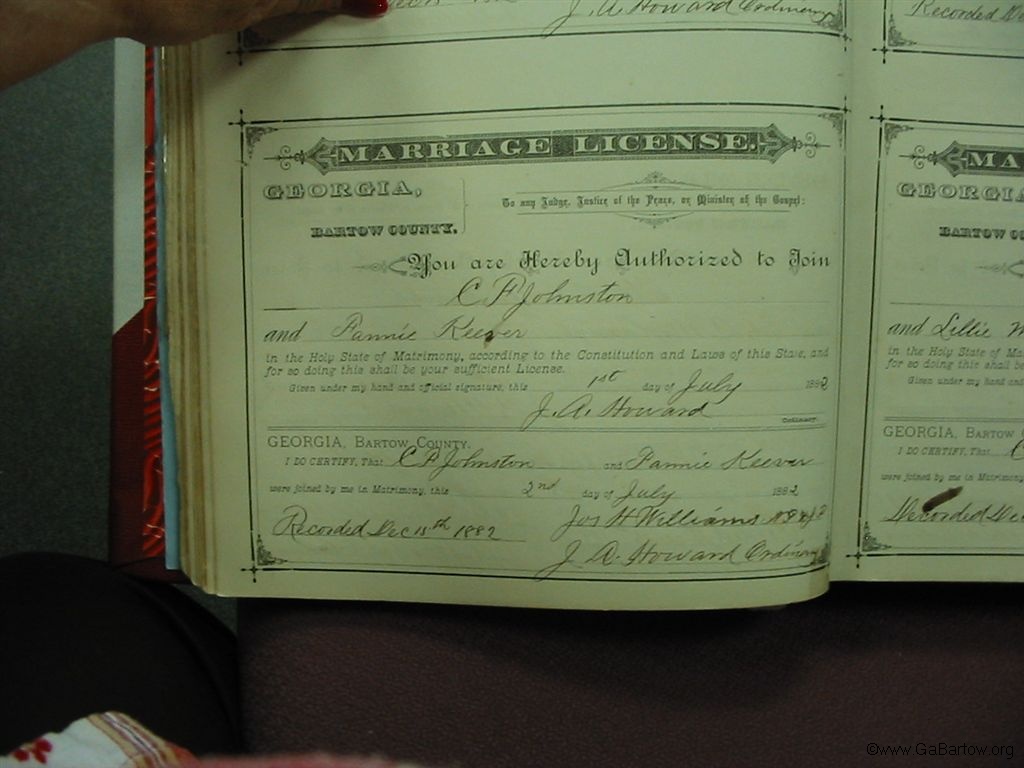 J. A. Howard Ordinary
Recorded De
MARRIAGE LICENSE.
GEORGIA,
BARTOW COUNTY.
To any Judge, Justice of the Peace, or Minister of the Gospel:
You are Hereby Authorized to Join
C F Johnston
and Fannie Keever
in the Holy State of Matrimony, according to the Constitution and Laws of this State, and
for so doing this shall be your sufficient License.
Given under my hand and official signature, this 1st day of July 1882
J. A. Howard
Ordinary.
GEORGIA, BARTOW COUNTY.
I DO CERTIFY, That C F Johnston and Fannie Keever
were joined by me in Matrimony, this 2nd day of July 1882
Jos H Williams
Recorded Dec 15th 1882
J. A. Howard Ordinary
MA
GEORGIA
BARTOW CO
and Lillie
in the Holy State of Matrimony
for so doing this shall be
Given under my hand and
GEORGIA, BARTOW
I DO CERTIFY, That
were joined by me in Matrimony
Recorded De
©www.GaBartow.org